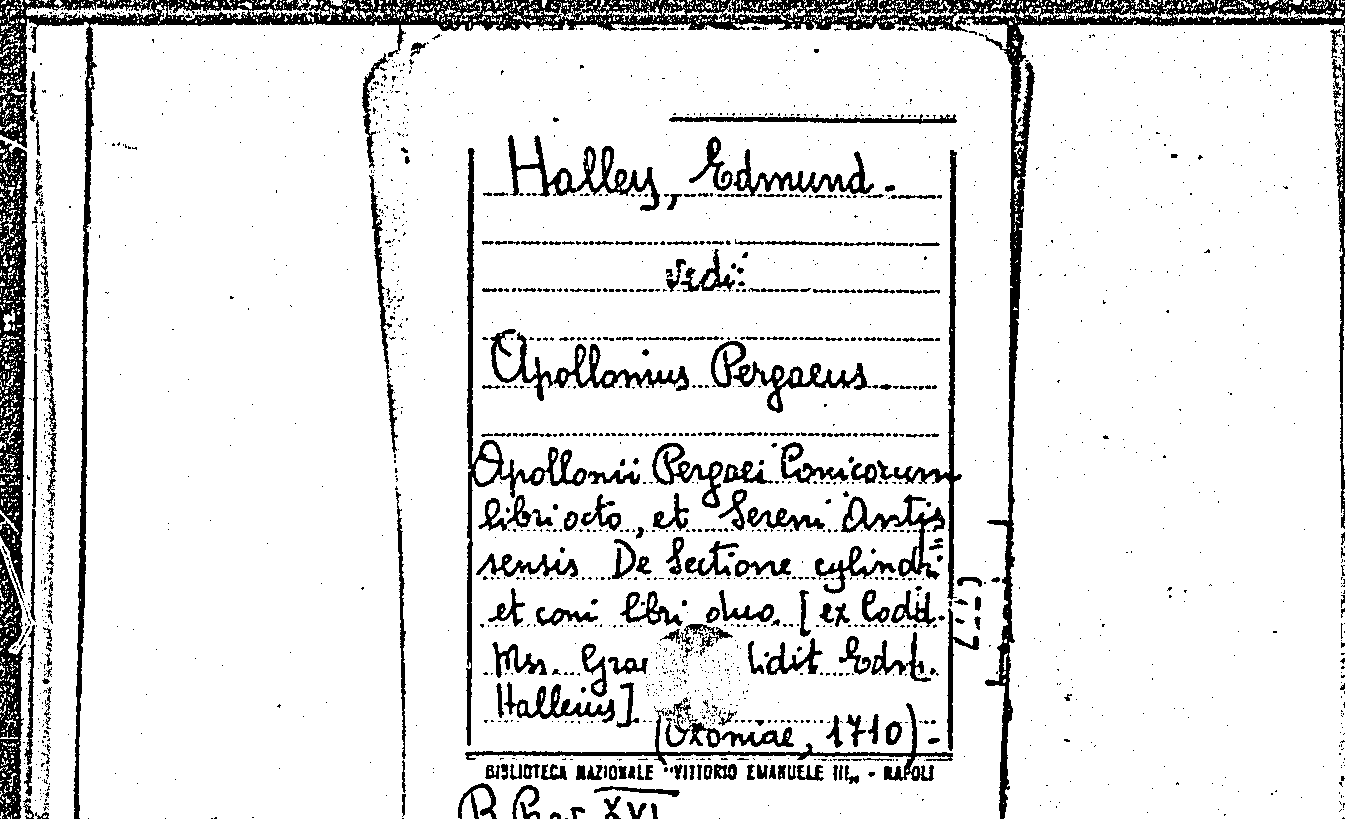 Halley, Edmund.
vedi:
Apollonius Pergaeus.
Apollonii Pergaei Conicorum
libri octo, et Sereni Antis
sensis De Sectione cylindri
et coni libri duo. [ex Codd.
Mss. Grae lidit Edm.
Halleius].
(Oxoniae, 1710).
BIBLIOTECA NAZIONALE "VITTORIO EMANUELE III" - NAPOLI
XVI